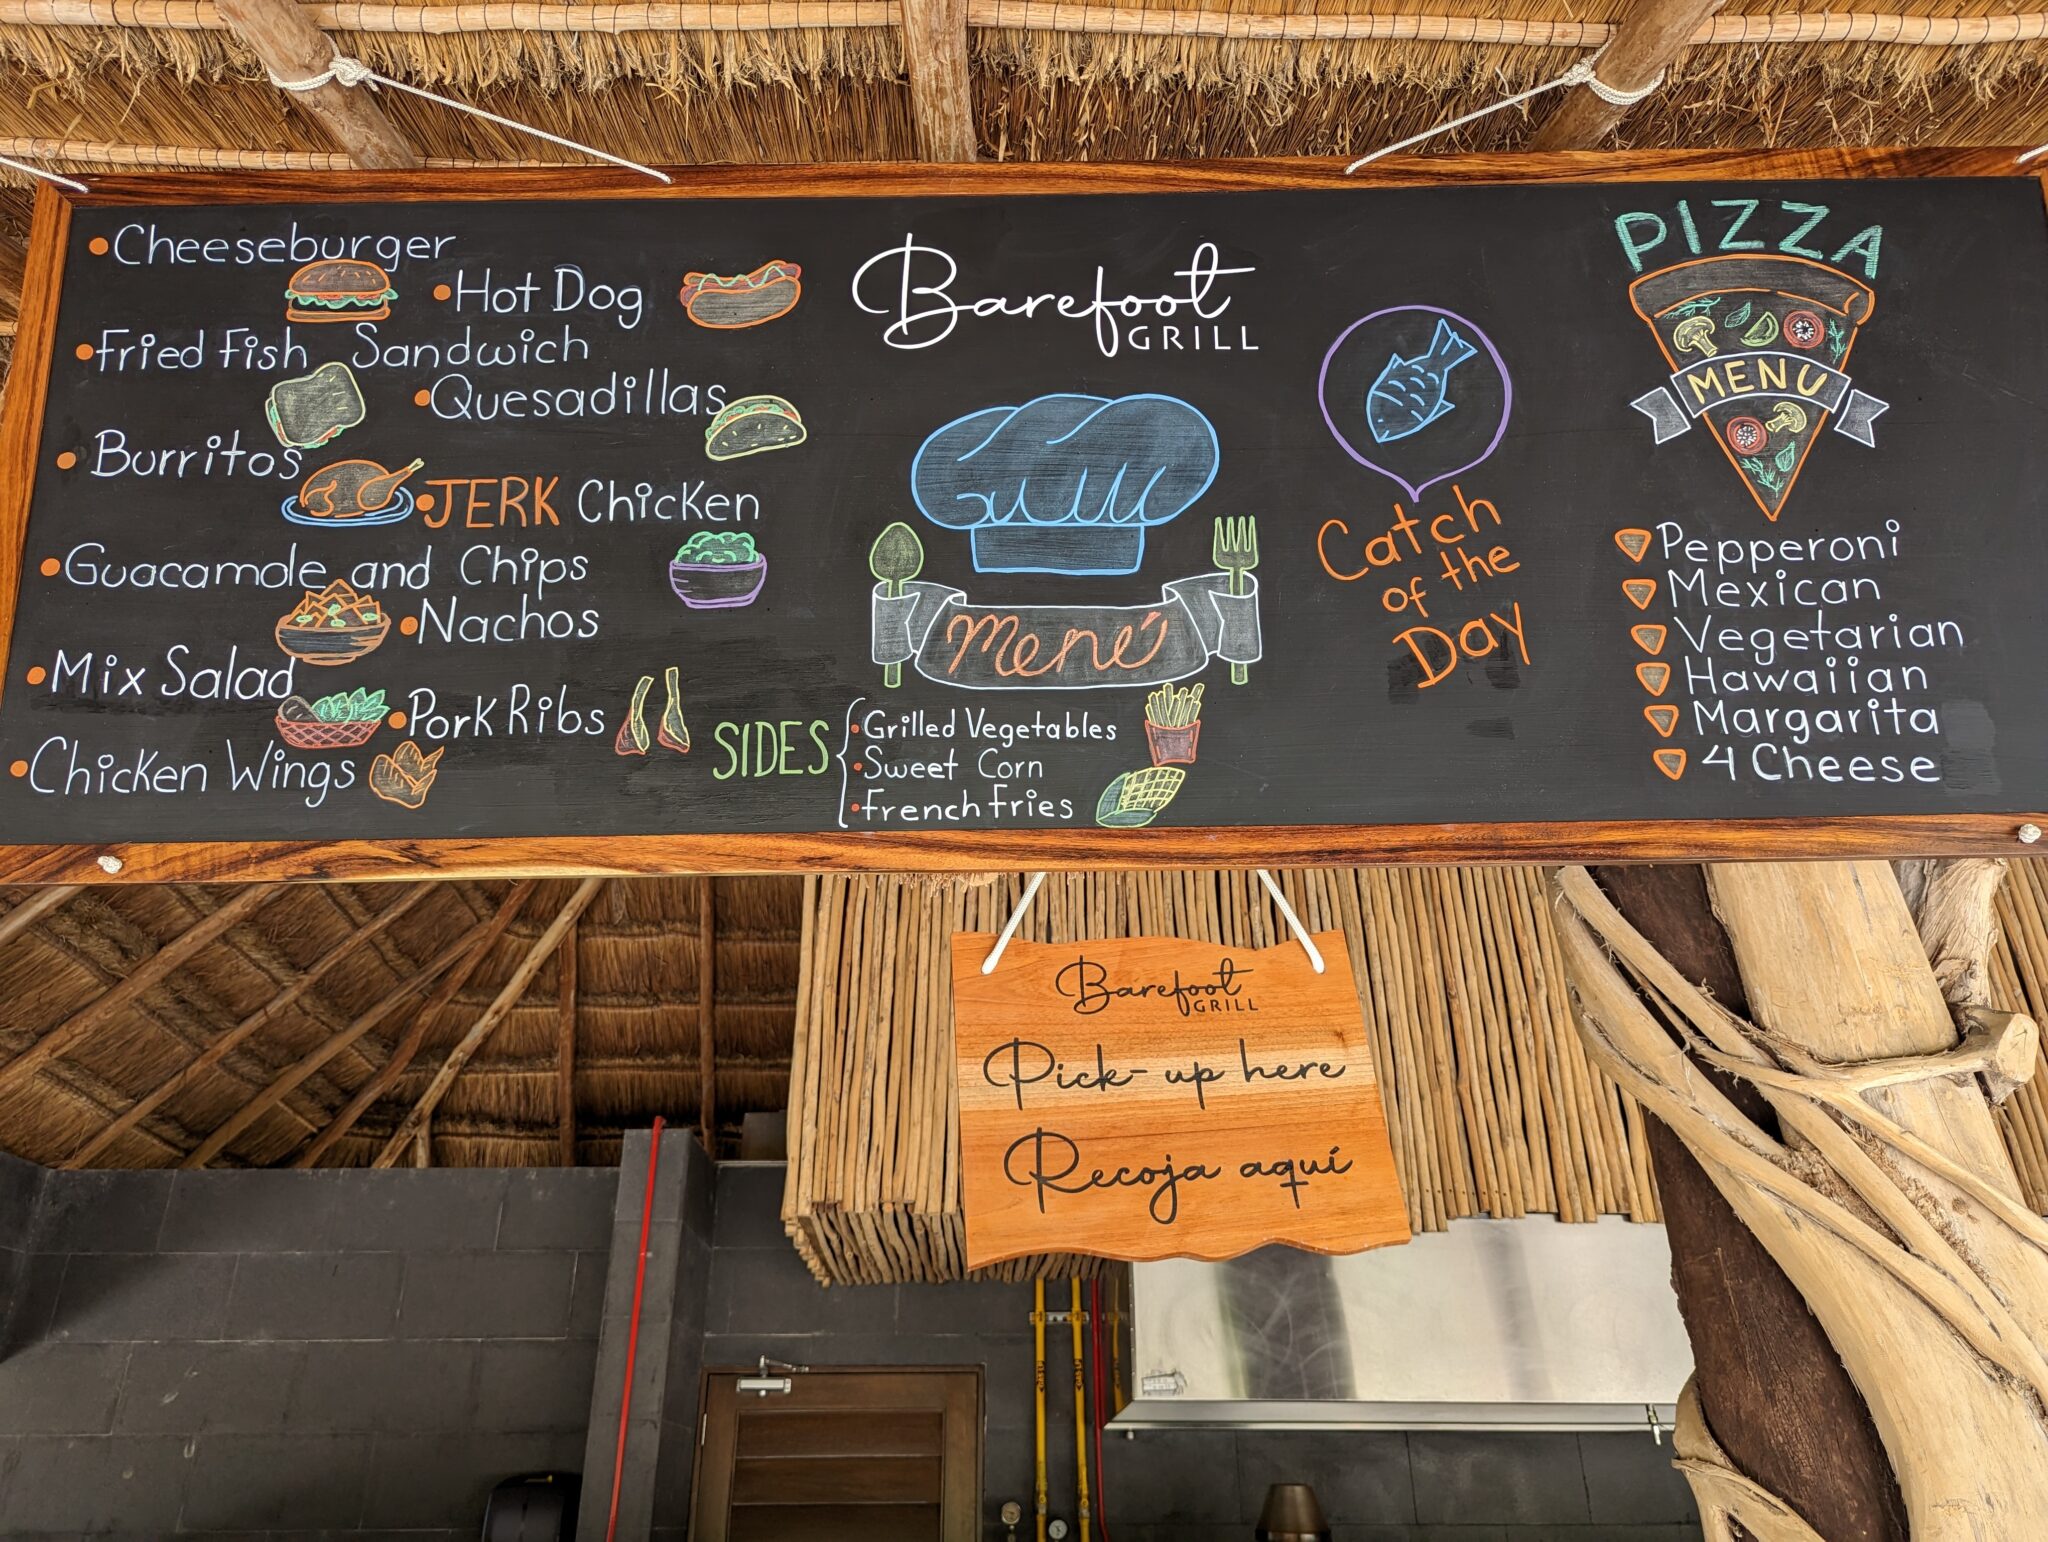 Cheeseburger
Hot Dog
Fried Fish Sandwich
Quesadillas
Burritos
JERK Chicken
Guacamole and Chips
Nachos
Mix Salad
Pork Ribs
Chicken Wings
Barefoot
GRILL
Menú
SIDES
Grilled Vegetables
Sweet Corn
French Fries
Catch
of the
Day
PIZZA
MENU
Pepperoni
Mexican
Vegetarian
Hawaiian
Margarita
4 Cheese
Barefoot
GRILL
Pick-up here
Recoja aquí